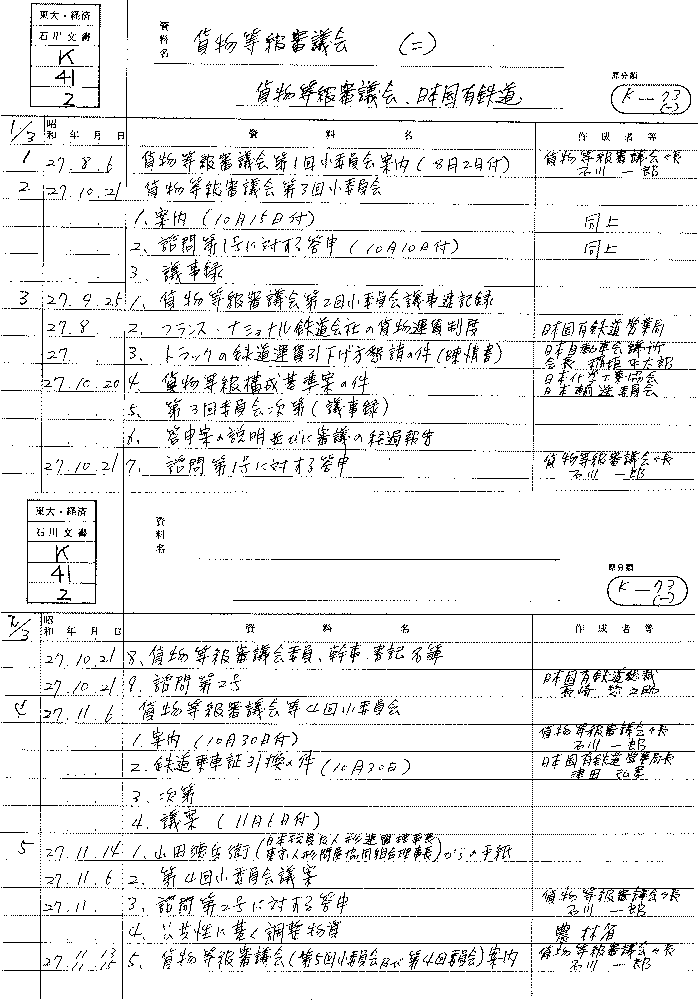 東大・経済
石川文書
K
41
2
資料名 貨物等級審議会 (二)
貨物等級審議会、日本国有鉄道
原分類
K-73
(-)
1/3 昭和 年 月 日 資料名 作成者等
1 27.8.6 貨物等級審議会第1回小委員会案内(8月2日付) 貨物等級審議会々長 石川一郎
2 27.10.21 貨物等級審議会第3回小委員会
1、案内(10月15日付) 同上
2、諮問第1号に対する答申(10月10日付) 同上
3、議事録
3 27.9.25 1、貨物等級審議会第2回小委員会議事速記録
27.8 2、フランス・ナショナル鉄道会社の貨物運賃制度 日本国有鉄道営業局
27 3、トラックの鉄道運賃引下げ方懇請の件(陳情書) 日本自動車会議所 会長
27.10.20 4、貨物等級構成基準案の件 日本化学工業協会
5、第3回委員会次第(議事録)
6、答申案の説明並びに審議の経過報告
27.10.21 7、諮問第1号に対する答申 貨物等級審議会々長 石川一郎
東大・経済
石川文書
K
41
2
資料名
原分類
K-73
(-)
2/3 昭和 年 月 日 資料名 作成者等
27.10.21 8、貨物等級審議会委員、幹事、書記名簿
27.10.21 9、諮問第2号 日本国有鉄道総裁 長崎惣之助
4 27.11.6 貨物等級審議会第4回小委員会
1、案内(10月30日付) 貨物等級審議会々長 石川一郎
2、鉄道乗車証引換の件(10月30日) 日本国有鉄道営業局長 津田弘孝
3、次第
4、議案(11月6日付)
5 27.11.14 1、山田徳兵衛(日本玩具及人形連盟理事長 東京人形問屋協同組合理事長)からの手紙
27.11.6 2、第4回小委員会議案
27.11. 3、諮問第2号に対する答申 貨物等級審議会々長 石川一郎
4、公共性に基く調整物資 農林省
27.11.13 11.15 5、貨物等級審議会(第5回小委員会及び第4回委員会)案内 貨物等級審議会々長 石川一郎